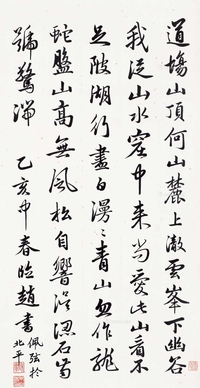 道場山頂何山麓上澈雲峯下幽谷
我從山水窟中来尚愛此山看不
足陂湖行盡白漫々青山忽作龍
蛇盤山高無風松自響誤認石齒
號驚湍 乙亥中春臨趙書 佩弦於
北平